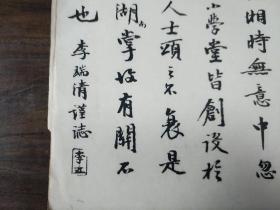 湘時無意中忽
小学堂皆創設於
人士頌之不衰是
湖掌故有關
也 李瑞清謹誌